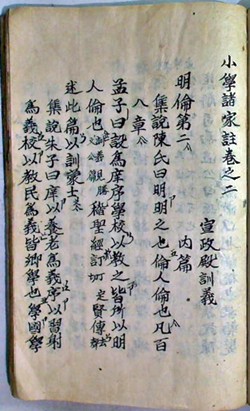 小學諸家註卷之二
宣政殿訓義
明倫第二 內篇
集說陳氏曰明明之也倫人倫也凡百
八章
孟子曰設爲庠序學校以敎之皆所以明
人倫也稽聖經訂賢傳
述此篇以訓蒙士
集說朱子曰庠以養老爲義序以習射
爲義校以敎民爲義皆鄕學也學國學